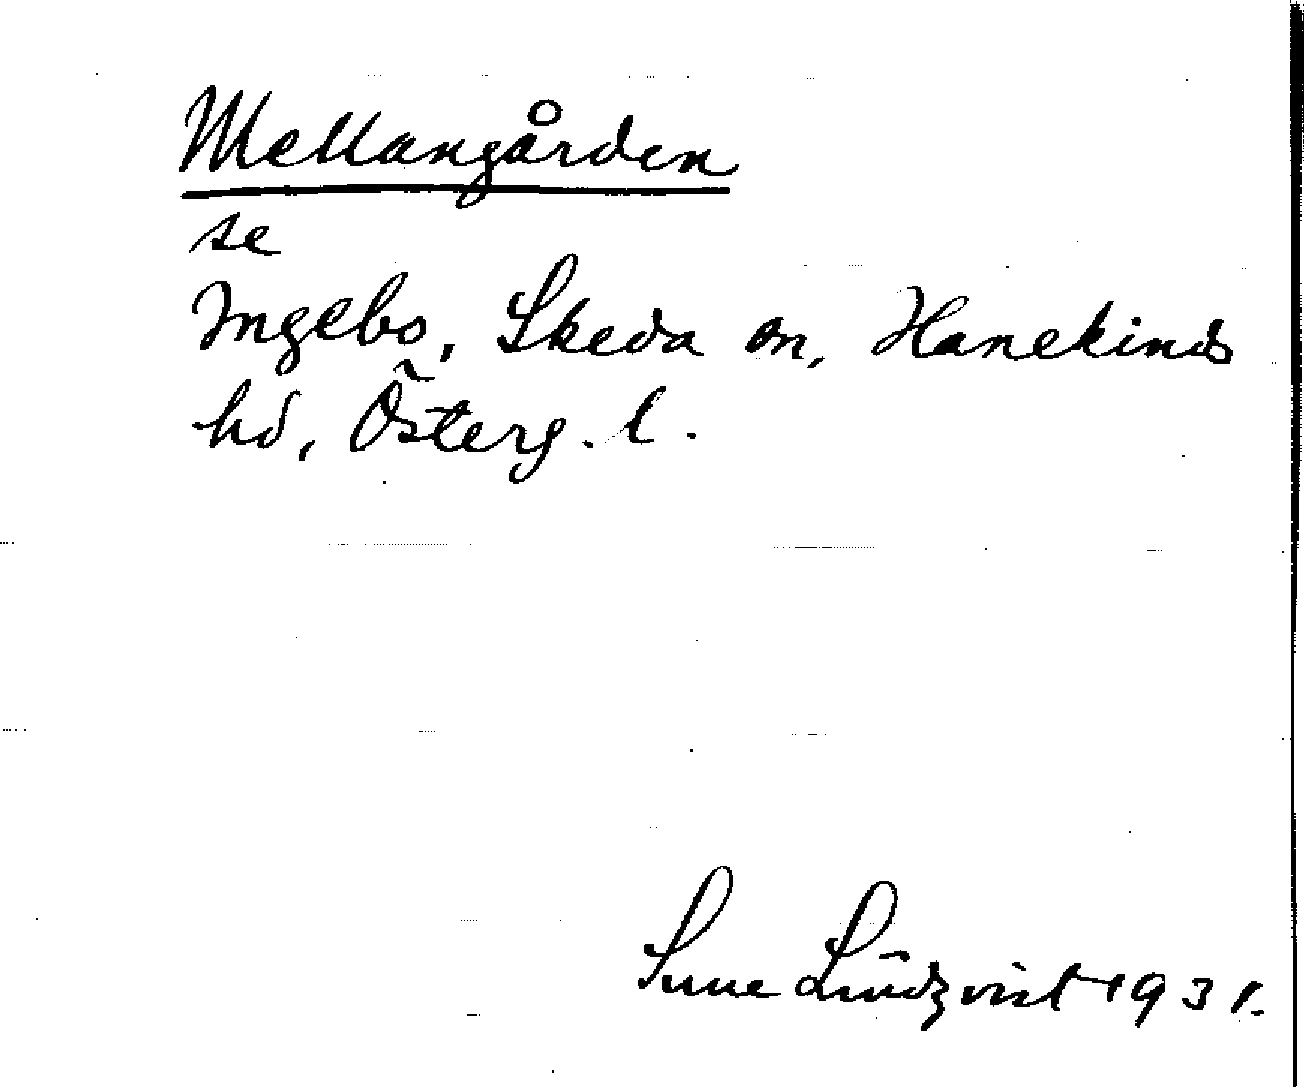 Mellangården
se
Ingebo, Skeda sn, Hanekinds
hd, Österg. l.
Sune Lindqvist 1931.